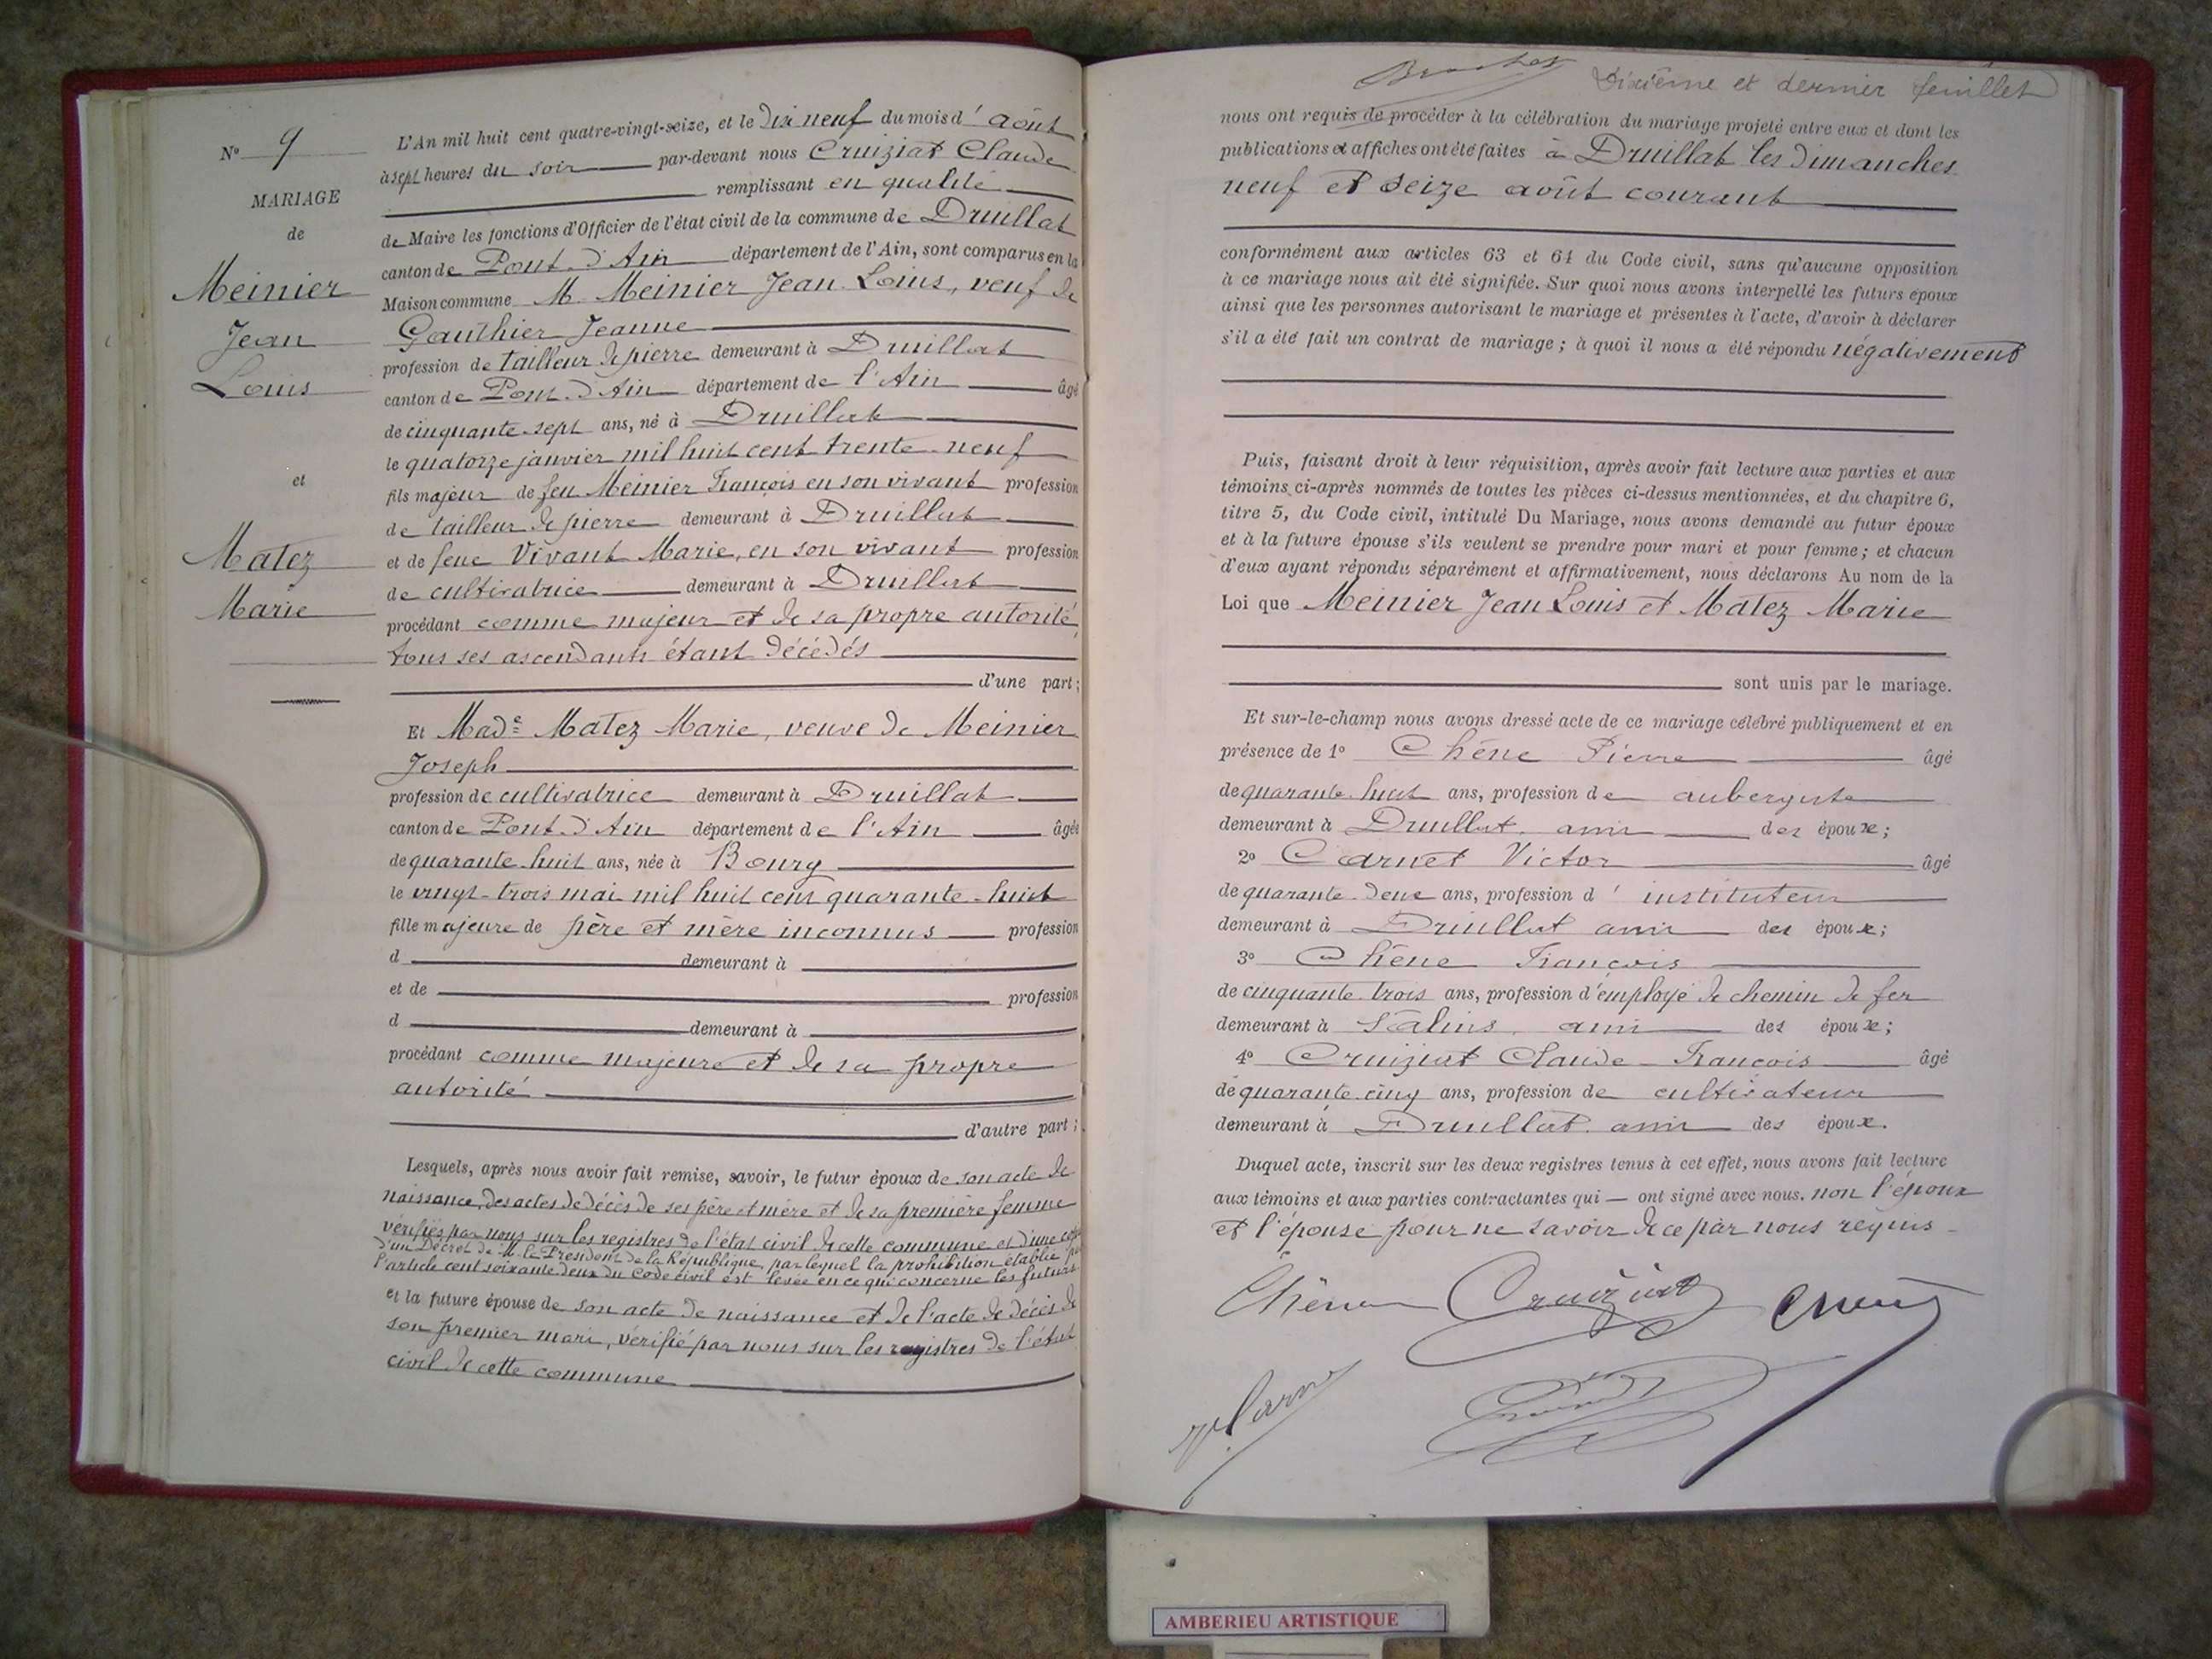 N° 9
MARIAGE
de
Meinier
Jean
Louis
et
Matez
Marie
L'An mil huit cent quatre-vingt-seize, et le dix neuf du mois d' août
à sept heures du soir par-devant nous Cruiziat Claude
remplissant en qualité
de Maire les fonctions d'Officier de l'état civil de la commune de Druillat
canton de Pont-d'Ain département de l'Ain, sont comparus en la
Maison commune M. Meinier Jean Louis, veuf de
Gauthier Jeanne
profession de tailleur de pierre demeurant à Druillat
canton de Pont-d'Ain département de l'Ain âgé
de cinquante-sept ans, né à Druillat
le quatorze janvier mil huit cent trente-neuf
fils majeur de feu Meinier François en son vivant profession
de tailleur de pierre demeurant à Druillat
et de feue Vivant Marie, en son vivant profession
de cultivatrice demeurant à Druillat
procédant comme majeur et de sa propre autorité,
tous ses ascendants étant décédés
d'une part;
Et Made Matez Marie, veuve de Meinier
Joseph
profession de cultivatrice demeurant à Druillat
canton de Pont-d'Ain département de l'Ain âgée
de quarante-huit ans, née à Bourg
le vingt-trois mai mil huit cent quarante-huit
fille majeure de père et mère inconnus profession
d demeurant à
et de profession
d demeurant à
procédant comme majeure et de sa propre
autorité
d'autre part;
Lesquels, après nous avoir fait remise, savoir, le futur époux de son acte de
naissance, des actes de décès de ses père et mère et de sa première femme
vérifiés par nous sur les registres de l'état civil de cette commune et d'une copie
d'un Décret de M. le Président de la République, par lequel la prohibition établie par
l'article cent soixante deux du Code civil est levée en ce qui concerne les futurs
et la future épouse de son acte de naissance et de l'acte de décès de
son premier mari, vérifié par nous sur les registres de l'état
civil de cette commune
Dixième et dernier feuillet
nous ont requis de procéder à la célébration du mariage projeté entre eux et dont les
publications et affiches ont été faites à Druillat les dimanches
neuf et seize août courant
conformément aux articles 63 et 64 du Code civil, sans qu'aucune opposition
à ce mariage nous ait été signifiée. Sur quoi nous avons interpellé les futurs époux
ainsi que les personnes autorisant le mariage et présentes à l'acte, d'avoir à déclarer
s'il a été fait un contrat de mariage; à quoi il nous a été répondu négativement
Puis, faisant droit à leur réquisition, après avoir fait lecture aux parties et aux
témoins ci-après nommés de toutes les pièces ci-dessus mentionnées, et du chapitre 6,
titre 5, du Code civil, intitulé Du Mariage, nous avons demandé au futur époux
et à la future épouse s'ils veulent se prendre pour mari et pour femme; et chacun
d'eux ayant répondu séparément et affirmativement, nous déclarons Au nom de la
Loi que Meinier Jean Louis et Matez Marie
sont unis par le mariage.
Et sur-le-champ nous avons dressé acte de ce mariage célébré publiquement et en
présence de 1° Chêne Pierre âgé
de quarante-huit ans, profession de aubergiste
demeurant à Druillat, ami des époux;
2° Carnet Victor âgé
de quarante-deux ans, profession d' instituteur
demeurant à Druillat ami des époux;
3° Chêne François
de cinquante-trois ans, profession d'employé de chemin de fer
demeurant à Salins, ami des époux;
4° Cruiziat Claude-François âgé
de quarante-cinq ans, profession de cultivateur
demeurant à Druillat, ami des époux.
Duquel acte, inscrit sur les deux registres tenus à cet effet, nous avons fait lecture
aux témoins et aux parties contractantes qui — ont signé avec nous, non l'époux
et l'épouse pour ne savoir de ce par nous requis
Chêne Cruiziat
AMBERIEU ARTISTIQUE